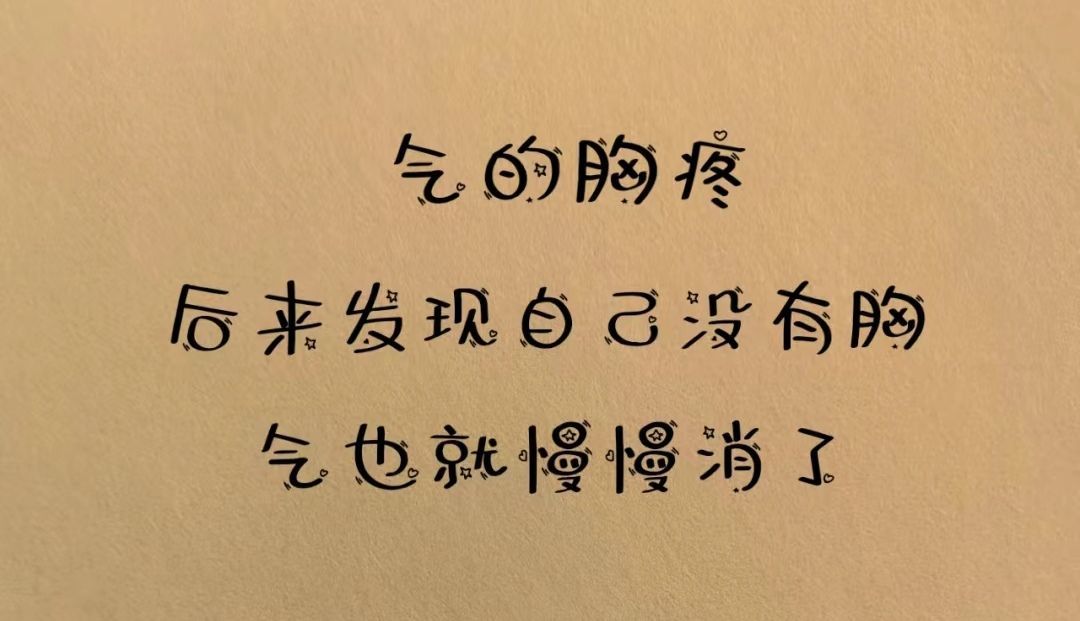 气的胸疼
后来发现自己没有胸
气也就慢慢消了